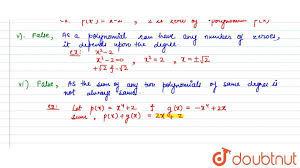 ex: p(x) = x-2 , 2 is zero of polynomial p(x)
v). False, As a polynomial can have any number of zeroes,
it depends upon the degree.
ex: x²-2
x²-2=0 , x²=2 , x=±√2
+√2 & -√2
vi) False, As the sum of any two polynomials of same degree is
not always same.
ex: Let p(x) = x⁴+2 & g(x) = -x⁴+2x
sum, p(x)+g(x) = 2x+2
doubtnut